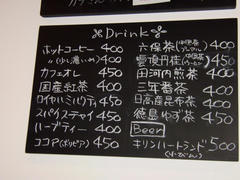 Drink
ホットコーヒー 400
〃(少し濃いめ) 400
カフェオレ 450
国産紅茶 400
ロイヤルミルクティ 450
スパイスティ 450
ハーブティー 400
ココア(ボリビア) 450
六保茶 400
雲南丹桂 450
田河内煎茶 400
三年番茶 400
日高産昆布茶 400
徳島ゆず茶 450
Beer
キリンハートランド 500